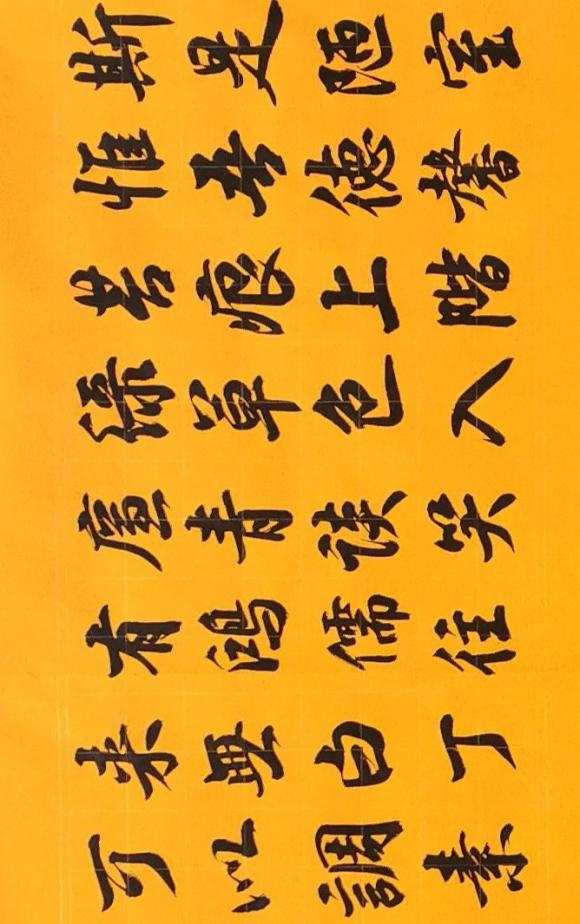 斯是陋室
惟吾德馨
苔痕上階
綠草色入
簾青談笑
有鴻儒往
来無白丁
可以調素